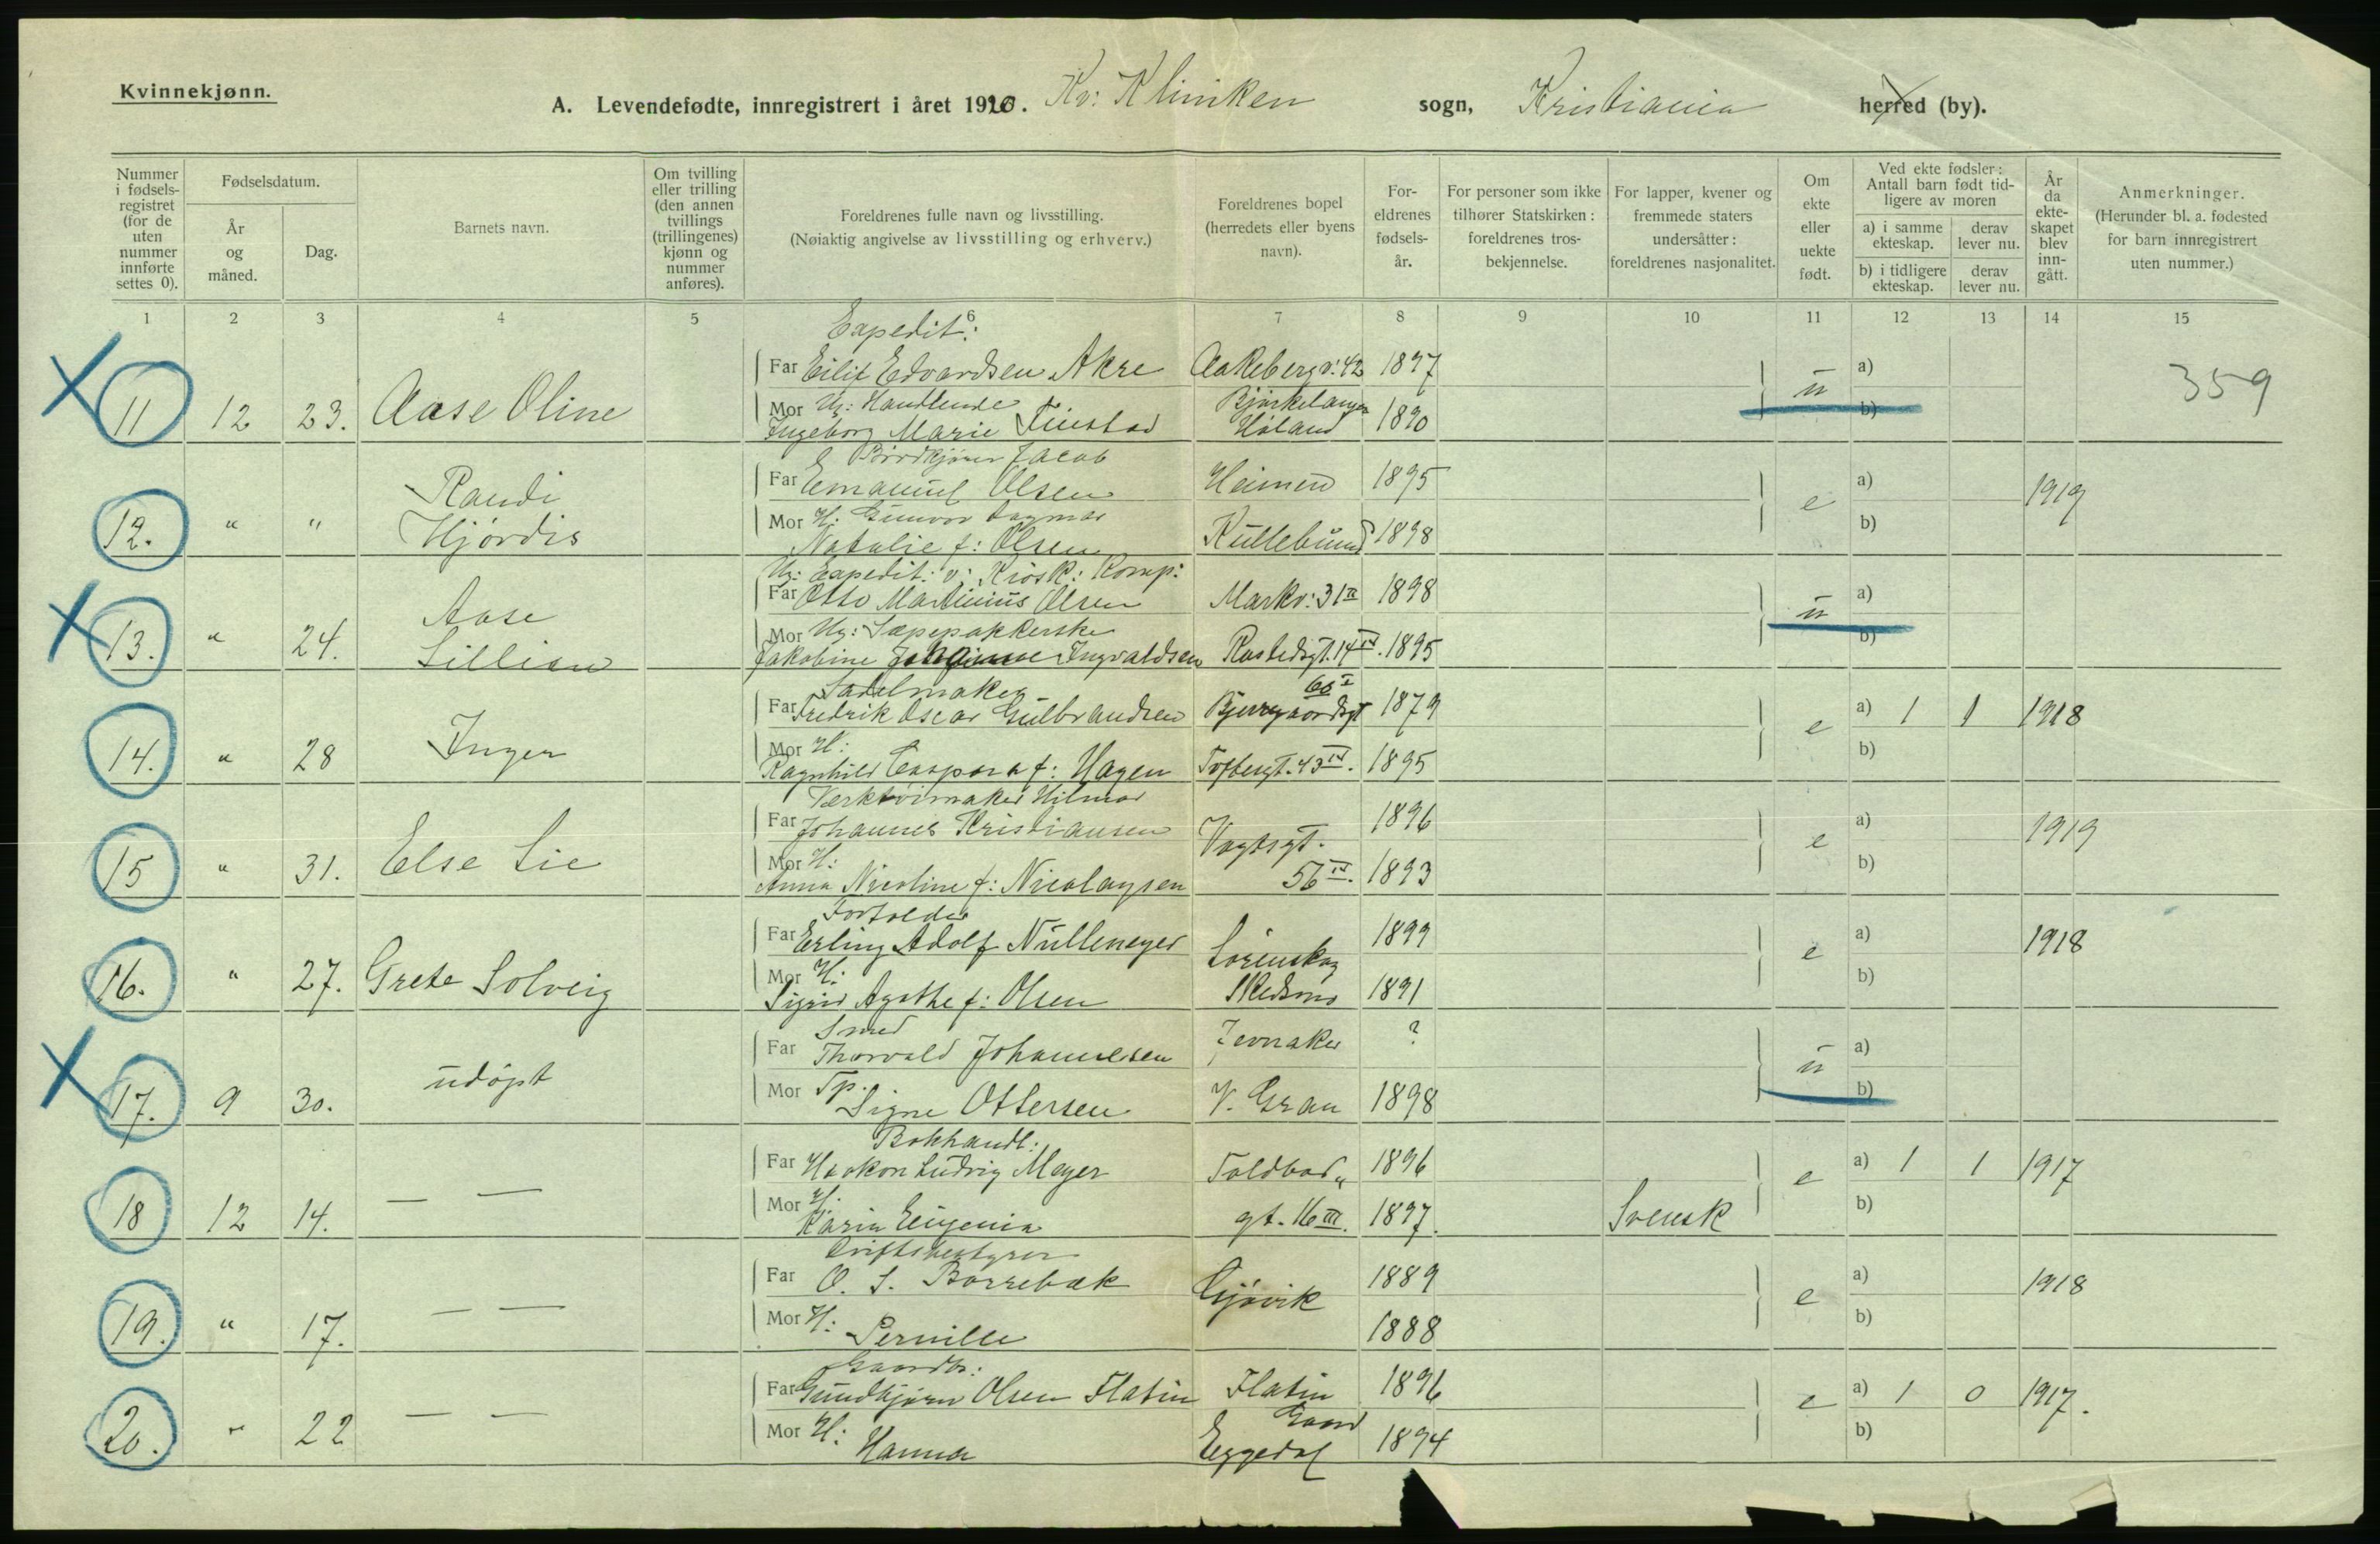 Kvinnekjønn.
A. Levendefødte, innregistrert i året 1920. Kv: Kliniken sogn, Kristiania herred (by).
Nummer i fødsels-registret (for de uten nummer innførte settes 0).
Fødselsdatum.
År og måned.
Dag.
Barnets navn.
Om tvilling eller trilling (den annen tvillings (trillingenes) kjønn og nummer anføres).
Foreldrenes fulle navn og livsstilling.
(Nøiaktig angivelse av livsstilling og erhverv.)
Foreldrenes bopel (herredets eller byens navn).
For-eldrenes fødsels-år.
For personer som ikke tilhører Statskirken: foreldrenes tros-bekjennelse.
For lapper, kvener og fremmede staters undersåtter: foreldrenes nasjonalitet.
Om ekte eller uekte født.
Ved ekte fødsler: Antall barn født tid-ligere av moren
a) i samme ekteskap.
derav lever nu.
b) i tidligere ekteskap.
derav lever nu.
År da ekte-skapet blev inn-gått.
Anmerkninger.
(Herunder bl. a. fødested for barn innregistrert uten nummer.)
1 2 3 4 5 6 7 8 9 10 11 12 13 14 15
Expedit:
Far Eilif Edvardsen Akre Aakebergv: 42 1897 a) 359
11 12 23. Aase Oline Mor Ug: Handlende Bjørkelangen ü b)
Ingeborg Marie Finstad Høland 1890
Brødkjører Jacob
Far Emanuel Olsen Heimen 1895 a) 1919
12. " " Randi Hjørdis Mor H: Gunvor Dagmar e b)
Natalie f: Olsen Kullebund 1898
Ug: Expedit: v: Kiosk: Komp:
Far Otto Martinius Olsen Markv: 31 II 1898 a)
13. " 24. Aase Lillian Mor Ug: Sæpepakkerske ü b)
Jakobine Johanne Ingvaldsen Rostedsgt. 14 IV. 1895
Sadelmaker 66 I
Far Fredrik Oscar Gulbrandsen Bjerregaardsgt 1879 a) 1 1 1918
14. " 28 Inger Mor H: e b)
Ragnhild Caspara f: Hagen Toftbergt. 43 IV. 1895
Verktøimaker Hilmar
Far Johannes Kristiansen Vogtsgt. 1896 a) 1919
15 " 31. Else Lie Mor H: e b)
Anna Nicoline f: Nicolaysen 56 IV. 1893
Forfolder
Far Erling Adolf Nüllmeyer Lørenskog 1899 a) 1918
16. " 27. Grete Solveig Mor H: e b)
Sigrid Agathe f: Olsen Skedsmo 1891
Smed
Far Thorvald Johannessen Jevnaker ? a)
17. 9 30. udöpt Mor Tp. ü b)
Signe Ottersen V. Gran 1898
Bokhandl:
Far Haakon Ludvig Meyer Toldbod" 1896 a) 1 1 1917
18 12 14. — — Mor H: e b)
Karin Eugenia gt. 16 III. 1897. Svensk
Driftsbestyrer
Far O. S. Borrebæk Gjøvik 1889 a) 1918
19. " 17. — — Mor H: e b)
Pernille 1888
Gaardbr:
Far Gundbjørn Olsen Flatin Flatin 1896 a) 1 0 1917.
20. " 22 — — Mor H: Gaard e b)
Hanna Eggedal 1894